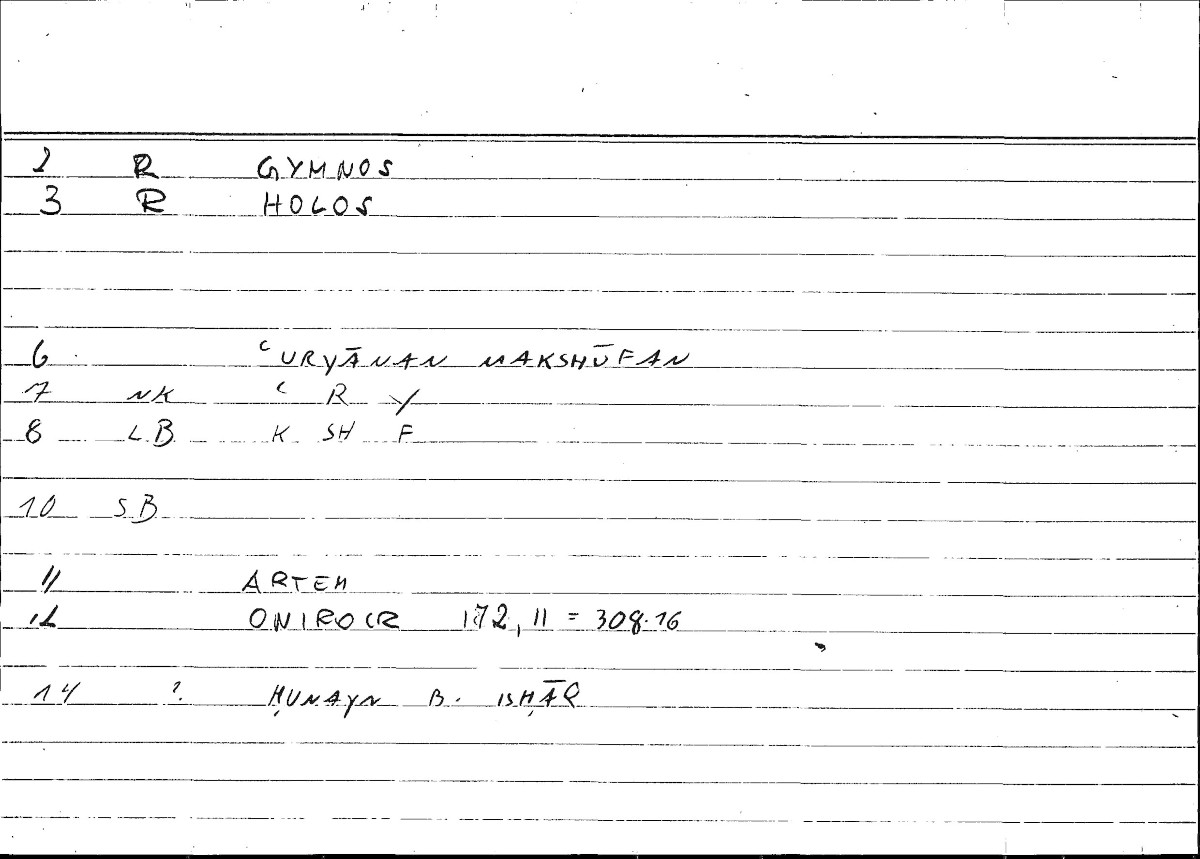 2 R GYMNOS
3 R HOLOS
6 ʿURYĀNAN MAKSHŪFAN
7 NK ʿ R Y
8 LB K SH F
10 SB
11 ARTEM
12 ONIROCR 172, 11 = 308.16
14 ? ḤUNAYN B. ISḤĀQ